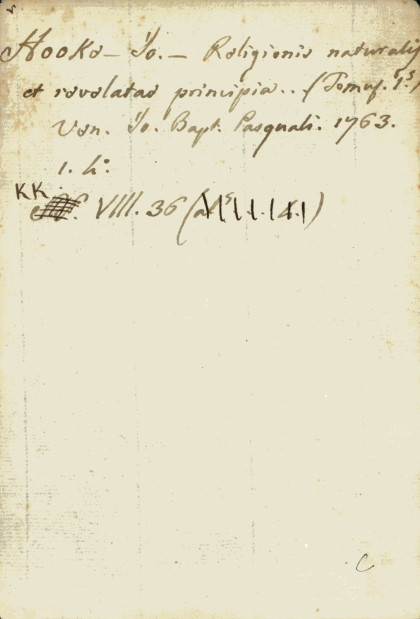 Hooke - Jo. - Religionis naturalis
et revelatae principia.. (Tomus. 1.s)
Ven. Jo. Bapt. Pasquali. 1763.
1. h.o
KK
VIII. 36 (al
C